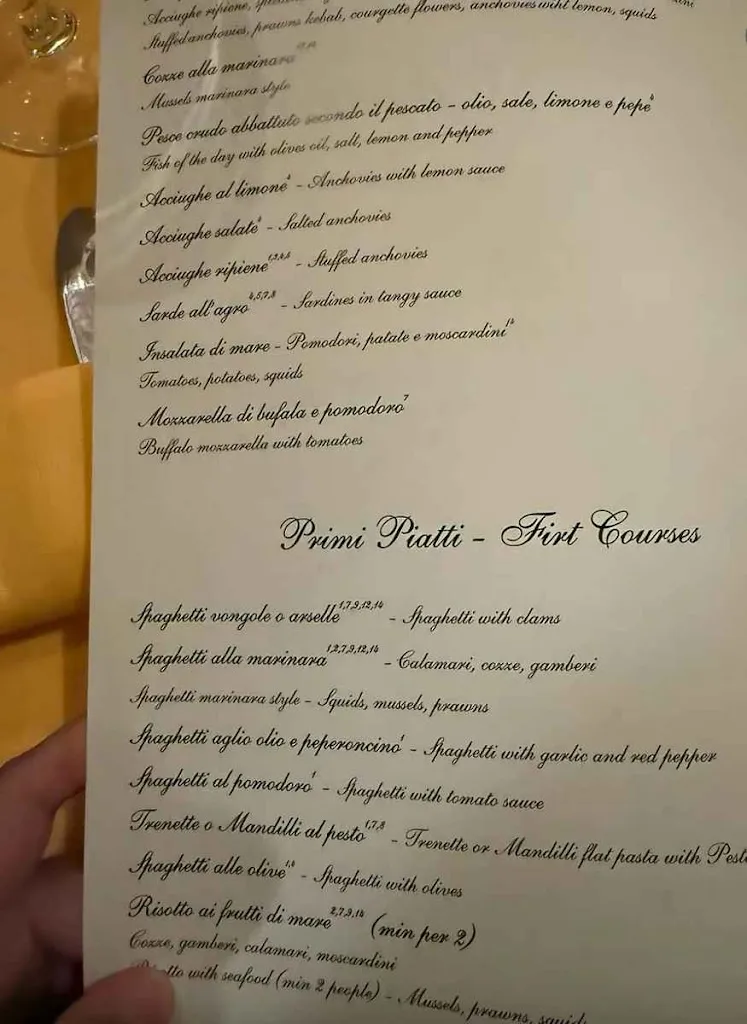 Acciughe ripiene,
Stuffed anchovies, prawns kebab, courgette flowers, anchovies wiht lemon, squids
Cozze alla marinara
Mussels marinara style
Pesce crudo abbattuto secondo il pescato - olio, sale, limone e pepe⁴
Fish of the day with olives oil, salt, lemon and pepper
Acciughe al limone⁴ - Anchovies with lemon sauce
Acciughe salate⁴ - Salted anchovies
Acciughe ripiene - Stuffed anchovies
Sarde all'agro⁴,⁵,⁷,⁸ - Sardines in tangy sauce
Insalata di mare - Pomodori, patate e moscardini¹⁴
Tomatoes, potatoes, squids
Mozzarella di bufala e pomodoro⁷
Buffalo mozzarella with tomatoes
Primi Piatti - Firt Courses
Spaghetti vongole o arselle¹,⁷,⁹,¹²,¹⁴ - Spaghetti with clams
Spaghetti alla marinara¹,²,⁷,⁹,¹²,¹⁴ - Calamari, cozze, gamberi
Spaghetti marinara style - Squids, mussels, prawns
Spaghetti aglio olio e peperoncino¹ - Spaghetti with garlic and red pepper
Spaghetti al pomodoro¹ - Spaghetti with tomato sauce
Trenette o Mandilli al pesto¹,⁷,⁸ - Trenette or Mandilli flat pasta with Pest
Spaghetti alle olive - Spaghetti with olives
Risotto ai frutti di mare²,⁷,⁹,¹⁴ (min per 2)
Cozze, gamberi, calamari, moscardini
with seafood (min 2 people) - Mussels, prawns, squid